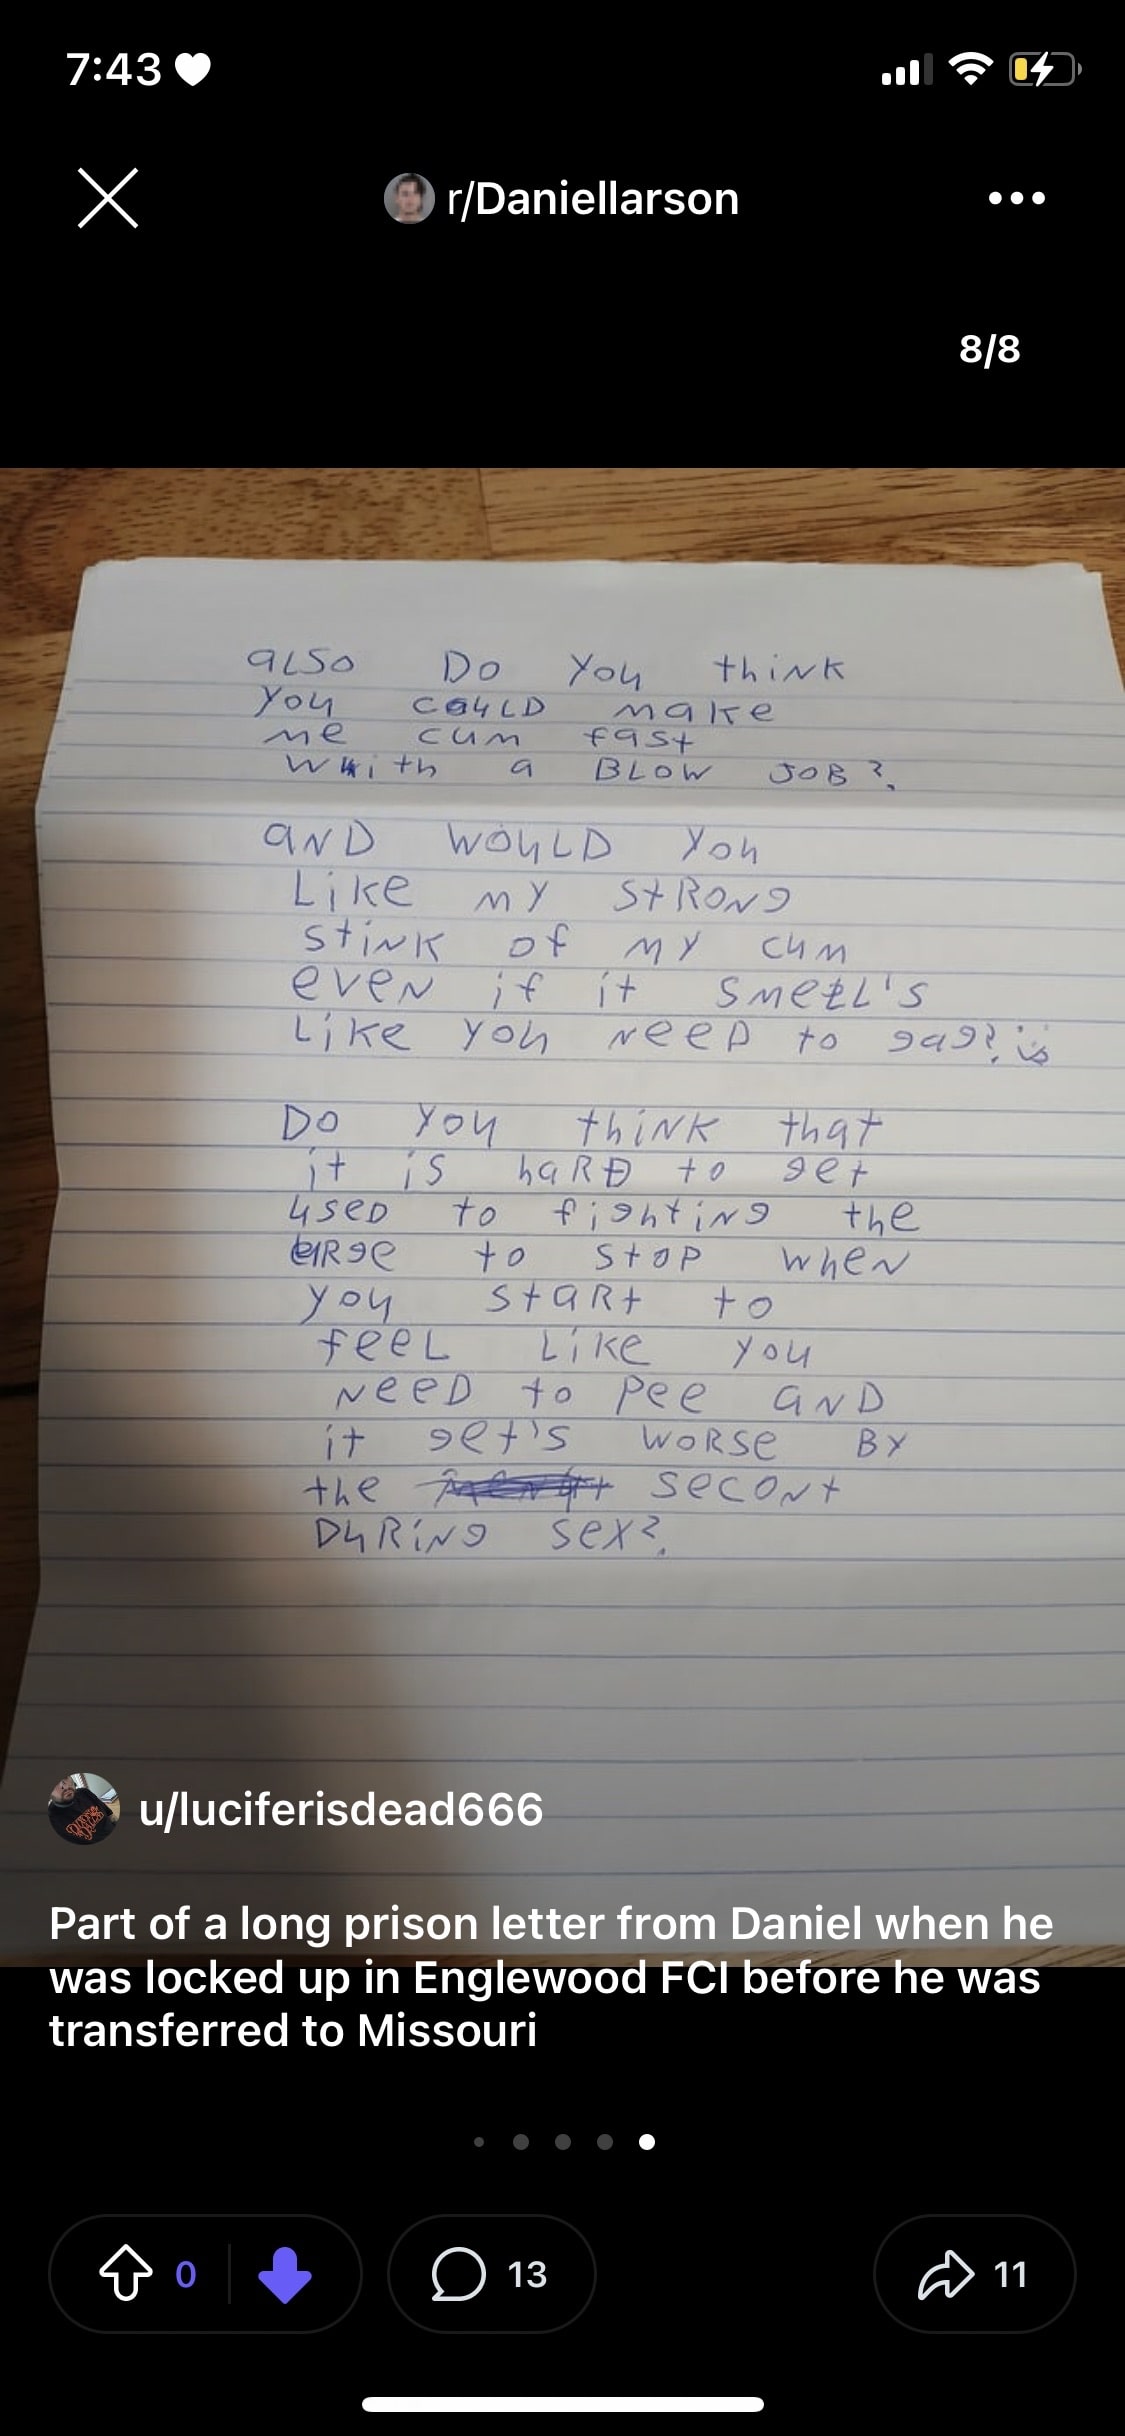 7:43
r/Daniellarson
8/8
aLSO Do You think
You COULD make
me cum fast
With a BLOW JOB?
aND WOULD You
Like MY StRONg
StiNK of MY CUM
eveN if it SMeLL'S
Like You NeeD to gag?
Do You thiNK that
it is haRD to get
USeD to fightiNg the
URge to StOP wheN
You StaRt to
feeL Like You
NeeD to Pee aND
it get's WORSe BY
the SeCONt
DURiNg Sex?
u/luciferisdead666
Part of a long prison letter from Daniel when he
was locked up in Englewood FCI before he was
transferred to Missouri
0
13
11